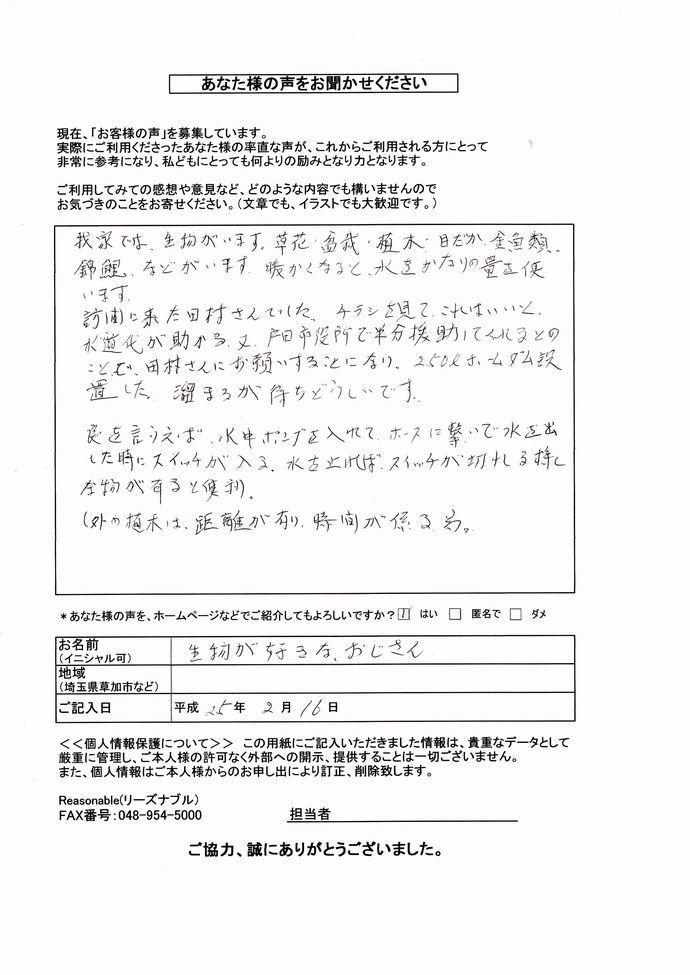 あなた様の声をお聞かせください
現在、「お客様の声」を募集しています。
実際にご利用くださったあなた様の率直な声が、これからご利用される方にとって
非常に参考になり、私どもにとっても何よりの励みとなり力となります。
ご利用してみての感想や意見など、どのような内容でも構いませんので
お気づきのことをお寄せください。（文章でも、イラストでも大歓迎です。）
我家では、生物がいます。草花・盆栽・植木・目だか、金魚類、
錦鯉、などがいます。暖かくなると、水をかなりの量を使
います。
訪問に来た田村さんでした、チラシを見て、これはいいと、
水道代が助かる、又、戸田市役所で半分援助してくれるとの
ことで、田村さんにお願いすることになり、250ℓホームダム設
置した。溜まるが待ちどうしいです。
良を言うえば、水中ポンプを入れて、ホースに繋いで水を出
した時にスイッチが入る、水を止れば、スイッチが切れる様し
全物が有ると便利。
（外の植木は、距離が有り、時間が係る為。
＊あなた様の声を、ホームページなどでご紹介してもよろしいですか？ はい □ 匿名で □ ダメ
お名前
（イニシャル可）
生物が好きな、おじさん
地域
（埼玉県草加市など）
ご記入日 平成 25 年 2 月 16 日
＜＜個人情報保護について＞＞ この用紙にご記入いただきました情報は、貴重なデータとして
厳重に管理し、ご本人様の許可なく外部への開示、提供することは一切ございません。
また、個人情報はご本人様からのお申し出により訂正、削除致します。
Reasonable（リーズナブル）
FAX番号：048-954-5000 担当者
ご協力、誠にありがとうございました。